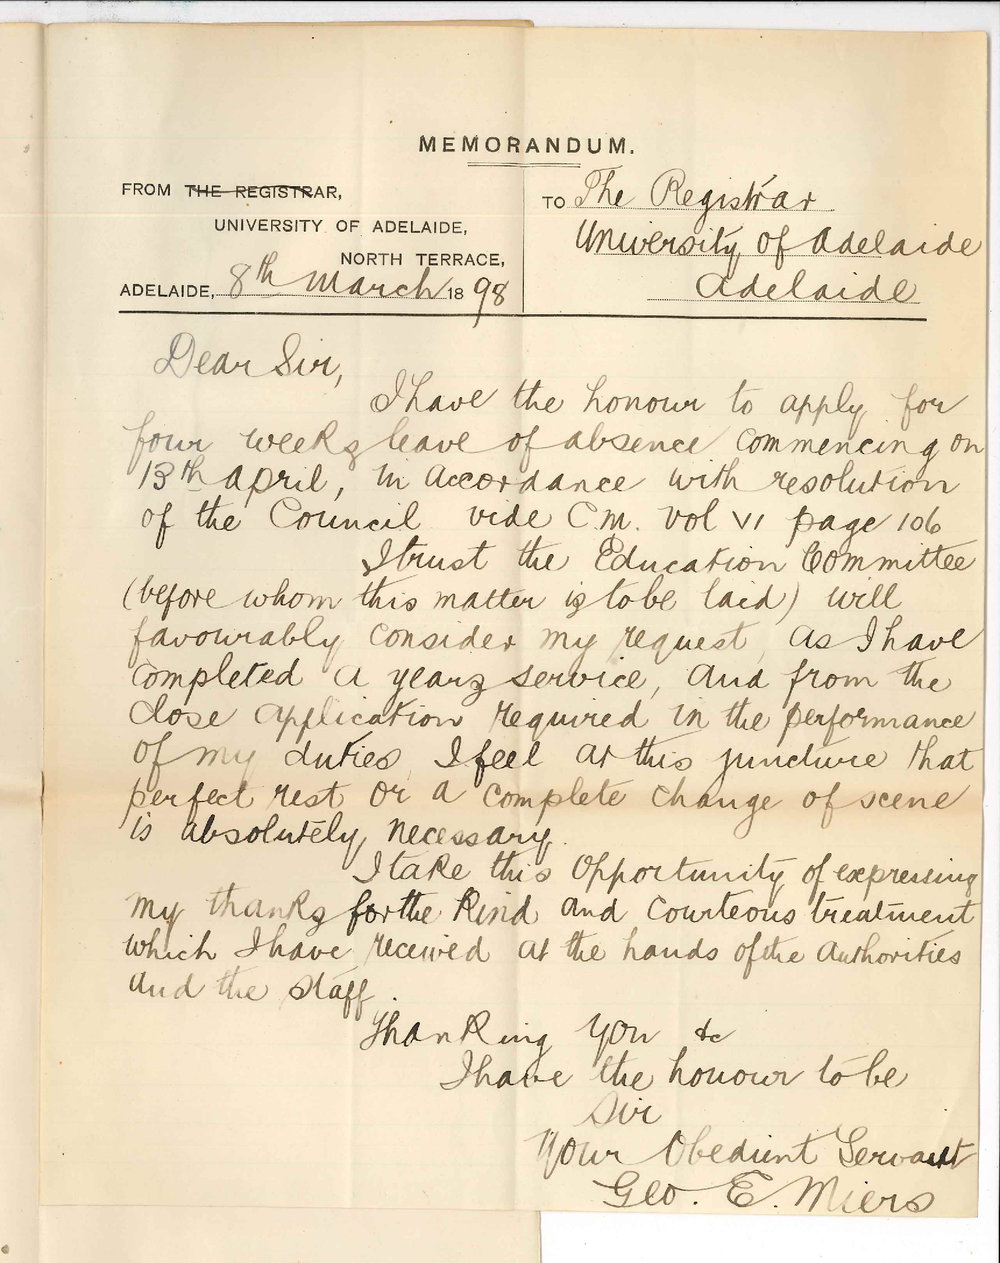 MEMORANDUM.
FROM THE REGISTRAR,
UNIVERSITY OF ADELAIDE,
NORTH TERRACE,
ADELAIDE, 8th March 1898
TO The Registrar
University of Adelaide
Adelaide
Dear Sir,
I have the honour to apply for
four weeks leave of absence commencing on
13th April, in accordance with resolution
of the Council vide C.M. Vol VI page 106
I trust the Education Committee
(before whom this matter is to be laid) will
favourably consider my request, as I have
completed a years service, and from the
close application required in the performance
of my duties, I feel at this juncture that
perfect rest or a complete change of scene
is absolutely necessary.
I take this opportunity of expressing
my thanks for the kind and courteous treatment
which I have received at the hands of the Authorities
and the staff.
Thanking you &c
I have the honour to be
Sir
Your Obedient Servant
Geo. E. Miers